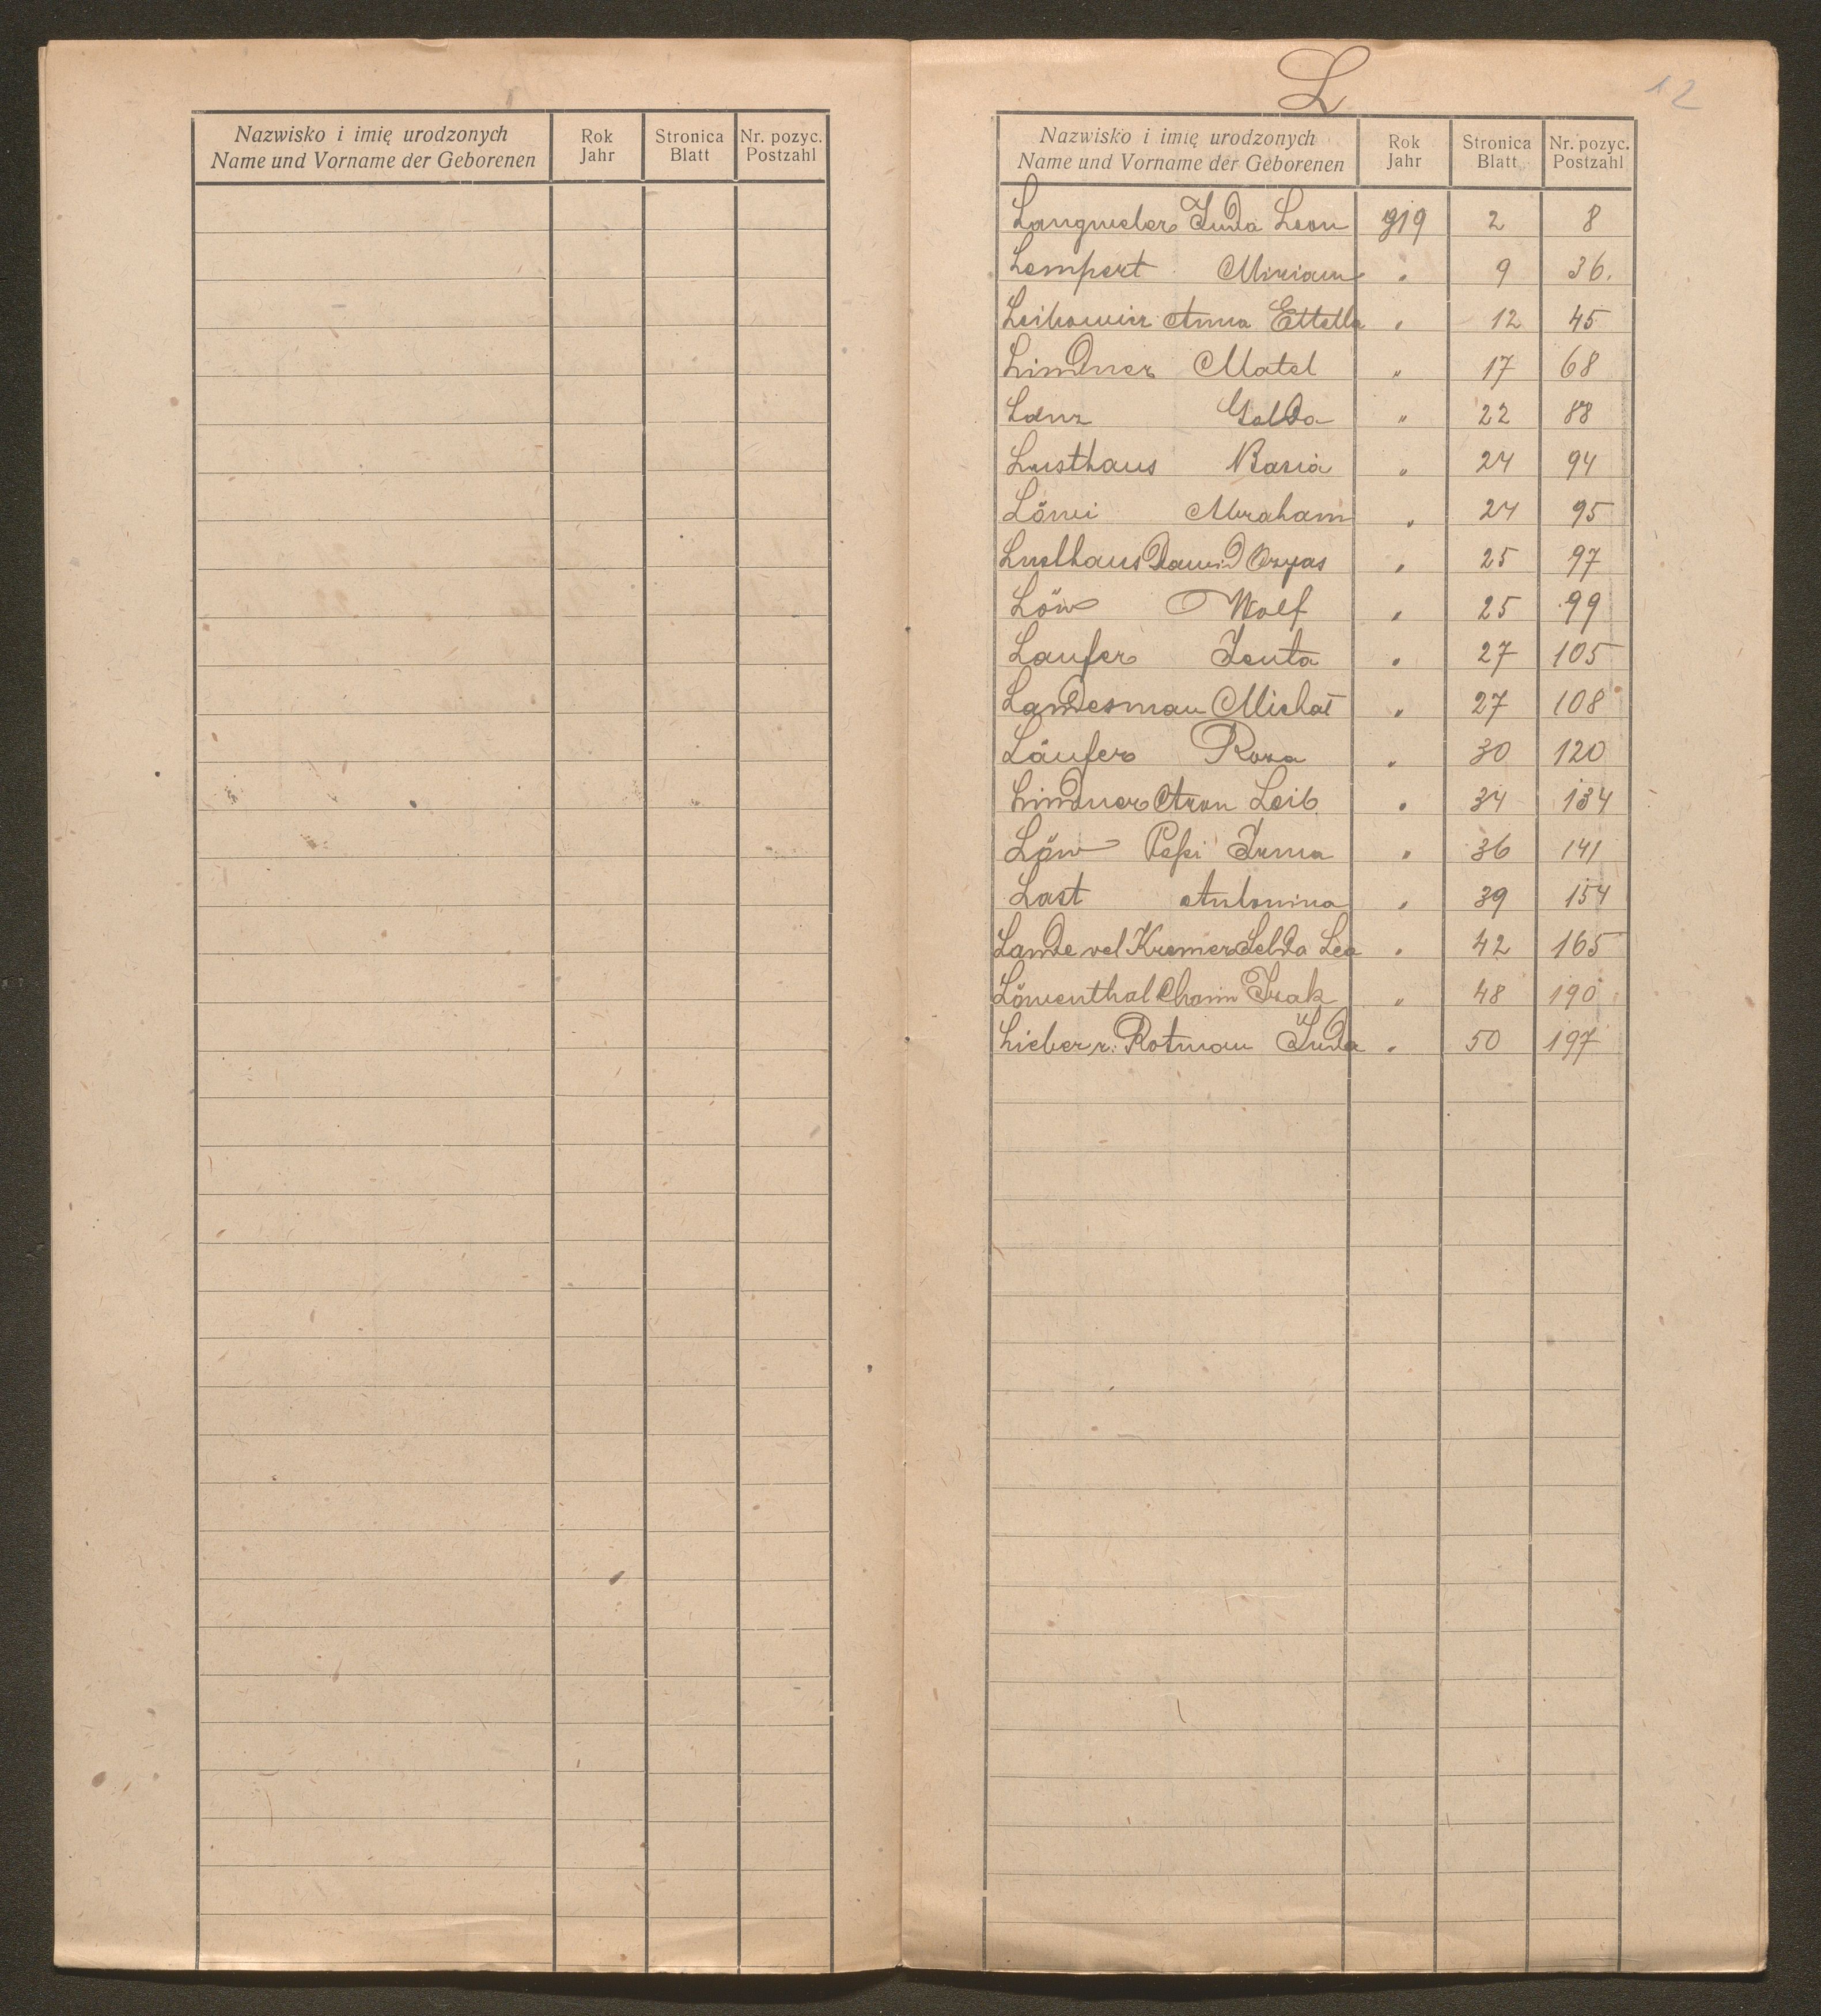 Nazwisko i imię urodzonych
Name und Vorname der Geborenen
Rok
Jahr
Stronica
Blatt
Nr. pozyc.
Postzahl
L
12
Nazwisko i imię urodzonych
Name und Vorname der Geborenen
Rok
Jahr
Stronica
Blatt
Nr. pozyc.
Postzahl
Juda Leon 919 2 8
Lempert Miriam " 9 36.
Leibowicz Anna Ettella " 12 45
Lindner Matel " 17 68
Lanz Golda " 22 88
Lusthaus Basia " 24 94
Löwi Abraham " 24 95
Lusthaus Dawid Ozyas " 25 97
Löw Wolf " 25 99
Laufer Jenta " 27 105
Landesman Michał " 27 108
Läufer Roza " 30 120
Lindner Aron Leib " 34 134
Löw Pessi " 36 141
Last Antonina " 39 154
Lande vel Kremer Selda Lea " 42 165
Löwenthal Chaim Izak " 48 190
Lieber r. Rotman Juda " 50 197